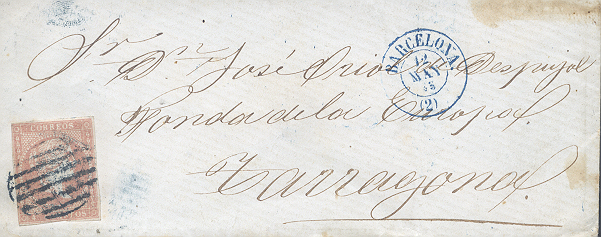 Sr. Dn. José Oriol Despujol
Fonda de la Europa
Tarragona
BARCELONA.
12
MAY
(2)
CORREOS